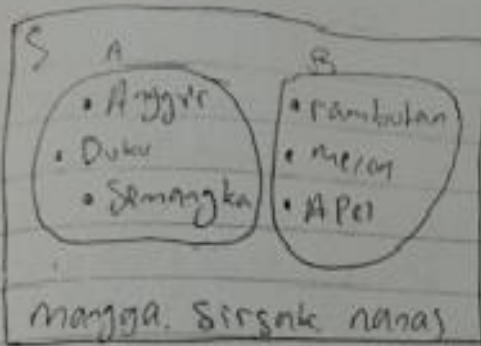 S
A
B
• Anggur
• Duku
• Semangka
• rambutan
• melon
• APel
mangga. Sirsak nanas